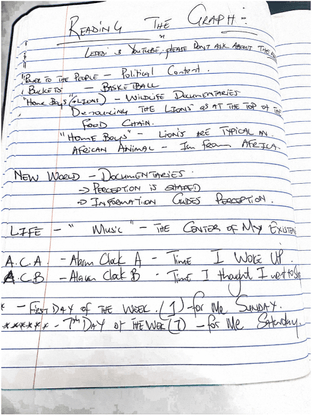 READING THE GRAPH :-
LIFE IS YOUTUBE, PLEASE DON'T ASK ABOUT THE
"POWER TO THE PEOPLE" - Political Content.
BUCKETS - BASKETBALL
"HOME BOYS" (LIONS) - WILDLIFE DOCUMENTARIES
THE LIONS AS AT THE TOP OF THE
FOOD CHAIN.
"HOME BOYS" - LIONS ARE TYPICAL AN
AFRICAN ANIMAL - I'm from AFRICA.
NEW WORLD - DOCUMENTARIES.
→ PERCEPTION IS SHAPED
→ INFORMATION GUIDES PERCEPTION.
LIFE - "MUSIC" - THE CENTER OF MY
A.C.A. - Alarm Clock A - TIME I WOKE UP.
A.C.B - Alarm Clock B - TIME I thought I
* - FIRST DAY OF THE WEEK. (1) - for ME SUNDAY.
****** - 7th DAY OF THE WEEK (7) - for ME Saturday.